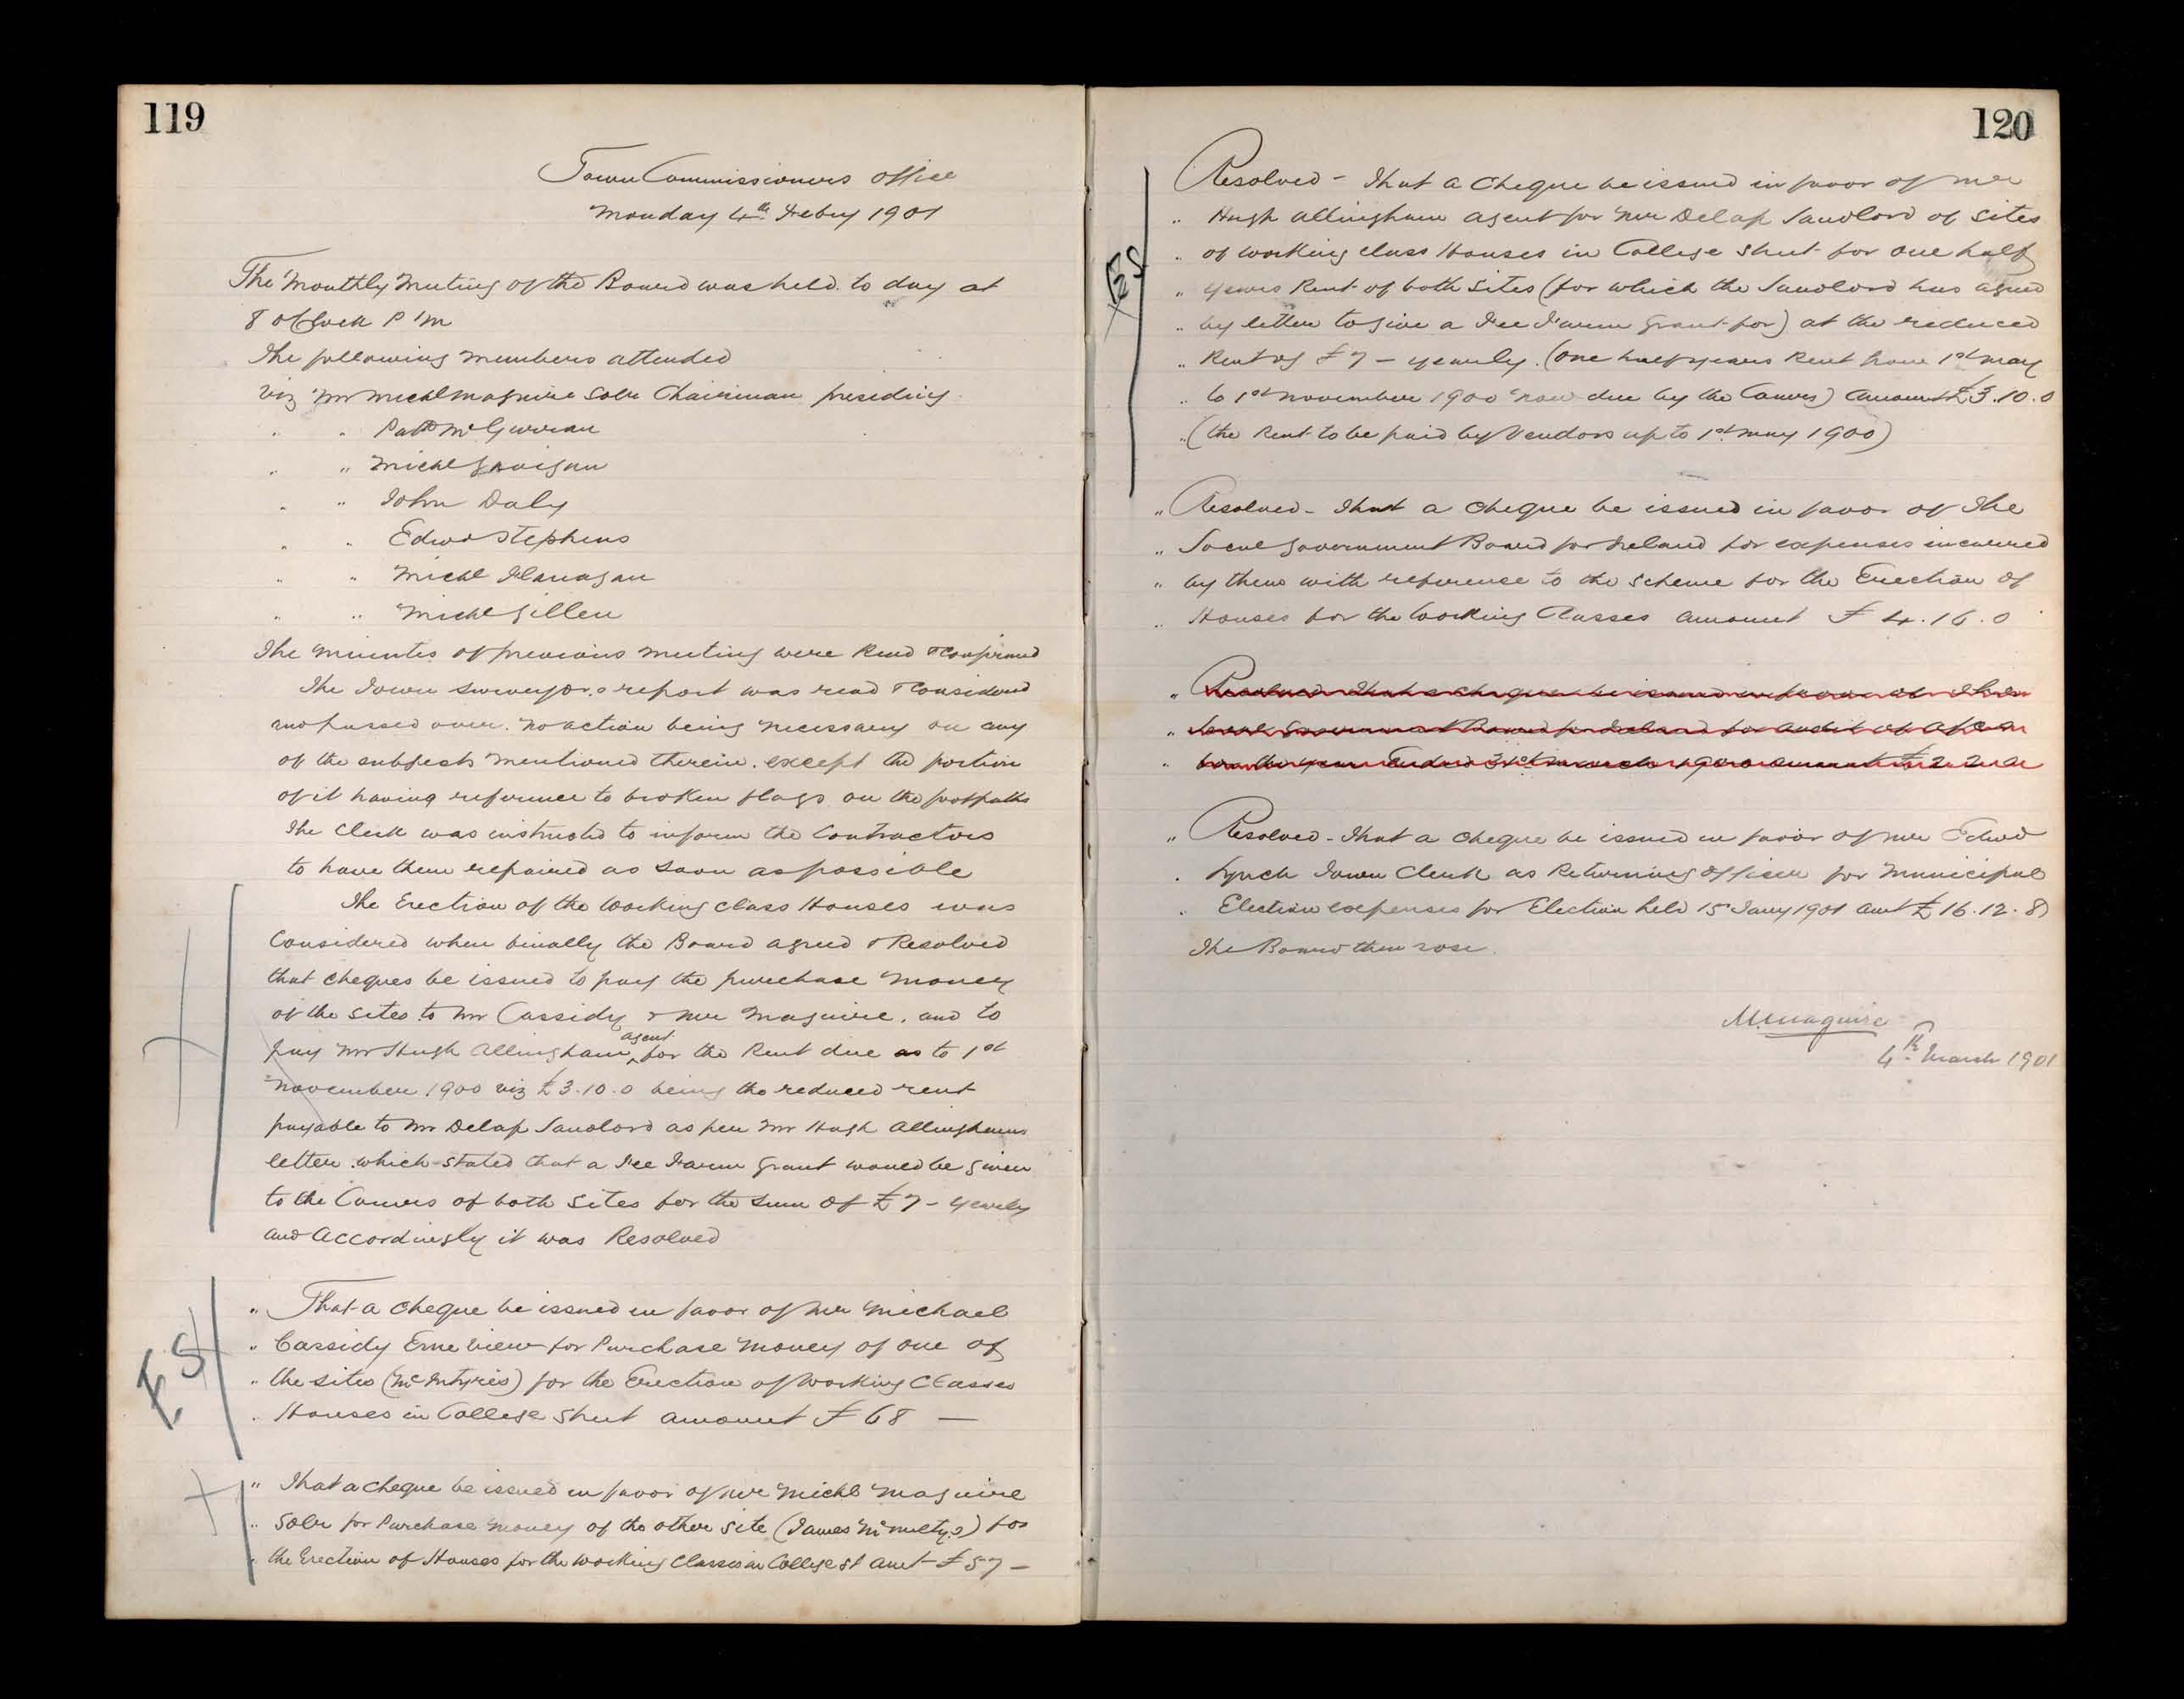 119
Town Commissioners office
Monday 4th Febry 1901
The Monthly Meeting of the Board was held to day at
8 oClock P M
The following members attended
viz Mr Michl Maguire Solr Chairman presiding
" " Patk McGurran
" " Michl Gavigan
" " John Daly
" " Edwd Stephens
" " Michl Flanagan
" " Michl Gillen
The minutes of previous meeting were Read & Confirmed
The Town Surveyor's report was read & Considered
and passed over. no action being necessary on any
of the subjects mentioned therein. except the portion
of it having reference to broken flags on the footpaths
The Clerk was instructed to inform the Contractors
to have them repaired as soon as possible
The Erection of the Working Class Houses was
Considered when finally the Board agreed & Resolved
that cheques be issued to pay the purchase money
of the sites to Mr Cassidy & Mr Maguire. and to
pay Mr Hugh Allingham agent for the Rent due as to 1st
November 1900 viz £3.10.0 being the reduced rent
payable to Mr Delap Landlord as per Mr Hugh Allinghams
letter which stated that a Fee Farm Grant would be given
to the Comrs of both sites for the sum of £7 - yearly
and Accordingly it was Resolved
" That a cheque be issued in favor of Mr Michael
" Cassidy Erne View for Purchase money of one of
" the sites (McIntyres) for the Erection of Working Classes
" Houses in College Street amount £68 —
" That a cheque be issued in favor of Mr Michl Maguire
" Solr for Purchase money of the other site (James McNulty's) for
" the Erection of Houses for the Working Classes in College St Amt £57 —
120
Resolved - That a Cheque be issued in favor of Mr
" Hugh Allingham agent for Mr Delap Landlord of sites
" of working class Houses in College Street for one half
" years Rent of both sites (for which the Landlord has agreed
" by letter to give a Fee Farm Grant for) at the reduced
" Rent of £7 - yearly. (One half years Rent from 1st May
" to 1st November 1900 now due by the Comrs) Amount £3.10.0
" (the Rent to be paid by Vendors up to 1st May 1900)
" Resolved - That a cheque be issued in favor of The
" Local Government Board for Ireland for expenses incurred
" by them with reference to the Scheme for the Erection of
" Houses for the Working Classes amount £4.16.0
" Resolved - That a cheque be issued in favor of The
" Local Government Board for Ireland for Audit of
" for the year Ended 31st March 1900 amount £2 2
" Resolved - That a cheque be issued in favor of Mr Edwd
" Lynch Town Clerk as Returning Officer for Municipal
" Election expenses for Election held 15 Jany 1901 amt £16.12.8
The Board then rose.
M Maguire
4th March 1901